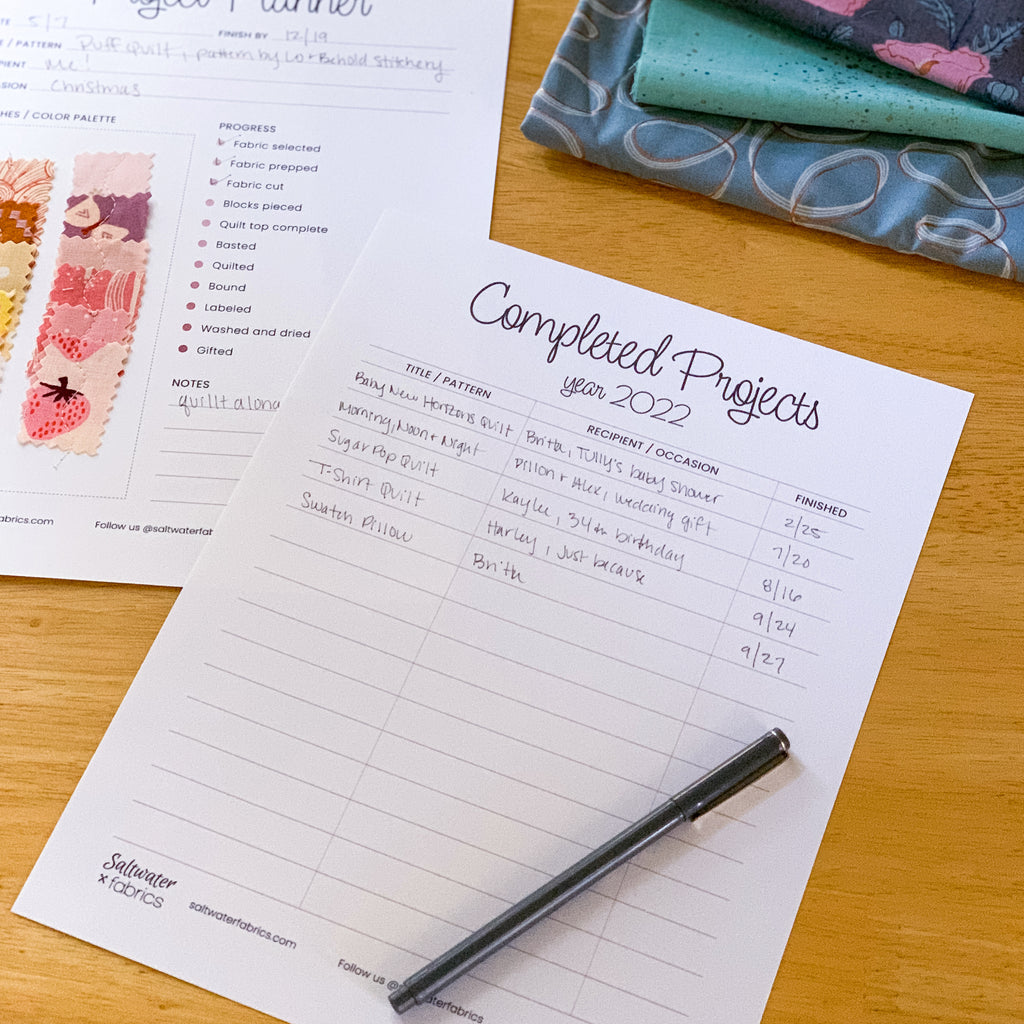 Project Planner
5/7 FINISH BY 12/19
/ PATTERN Puff Quilt, pattern by Lo + Behold Stitchery
me!
Christmas
/ COLOR PALETTE
PROGRESS
Fabric selected
Fabric prepped
Fabric cut
Blocks pieced
Quilt top complete
Basted
Quilted
Bound
Labeled
Washed and dried
Gifted
NOTES
quilt along
abrics.com Follow us @saltwaterfab
Completed Projects
year 2022
TITLE / PATTERN RECIPIENT / OCCASION FINISHED
Baby New Horizons Quilt Britta, Tully's baby shower 2/25
Morning, Noon + Night Dillon + Alex, wedding gift 7/20
Sugar Pop Quilt Kaylee, 34th birthday 8/16
T-Shirt Quilt Harley, just because 9/24
Swatch Pillow Britta 9/27
Saltwater
fabrics
saltwaterfabrics.com
Follow us @ waterfabrics